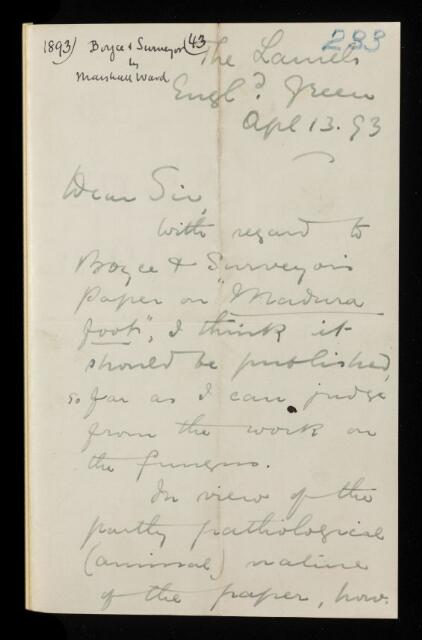 1893) Boyce & Surveyor (43
by
Marshall Ward
233
The Laurels
Engl.d Green
Apl 13. 93
Dear Sir,
With regard to
Boyce & Surveyor's
Paper on "Madura
foot", I think it
should be published,
so far as I can judge
from the work on
the fungus.
In view of the
partly pathological
(animal) nature
of the paper, how-